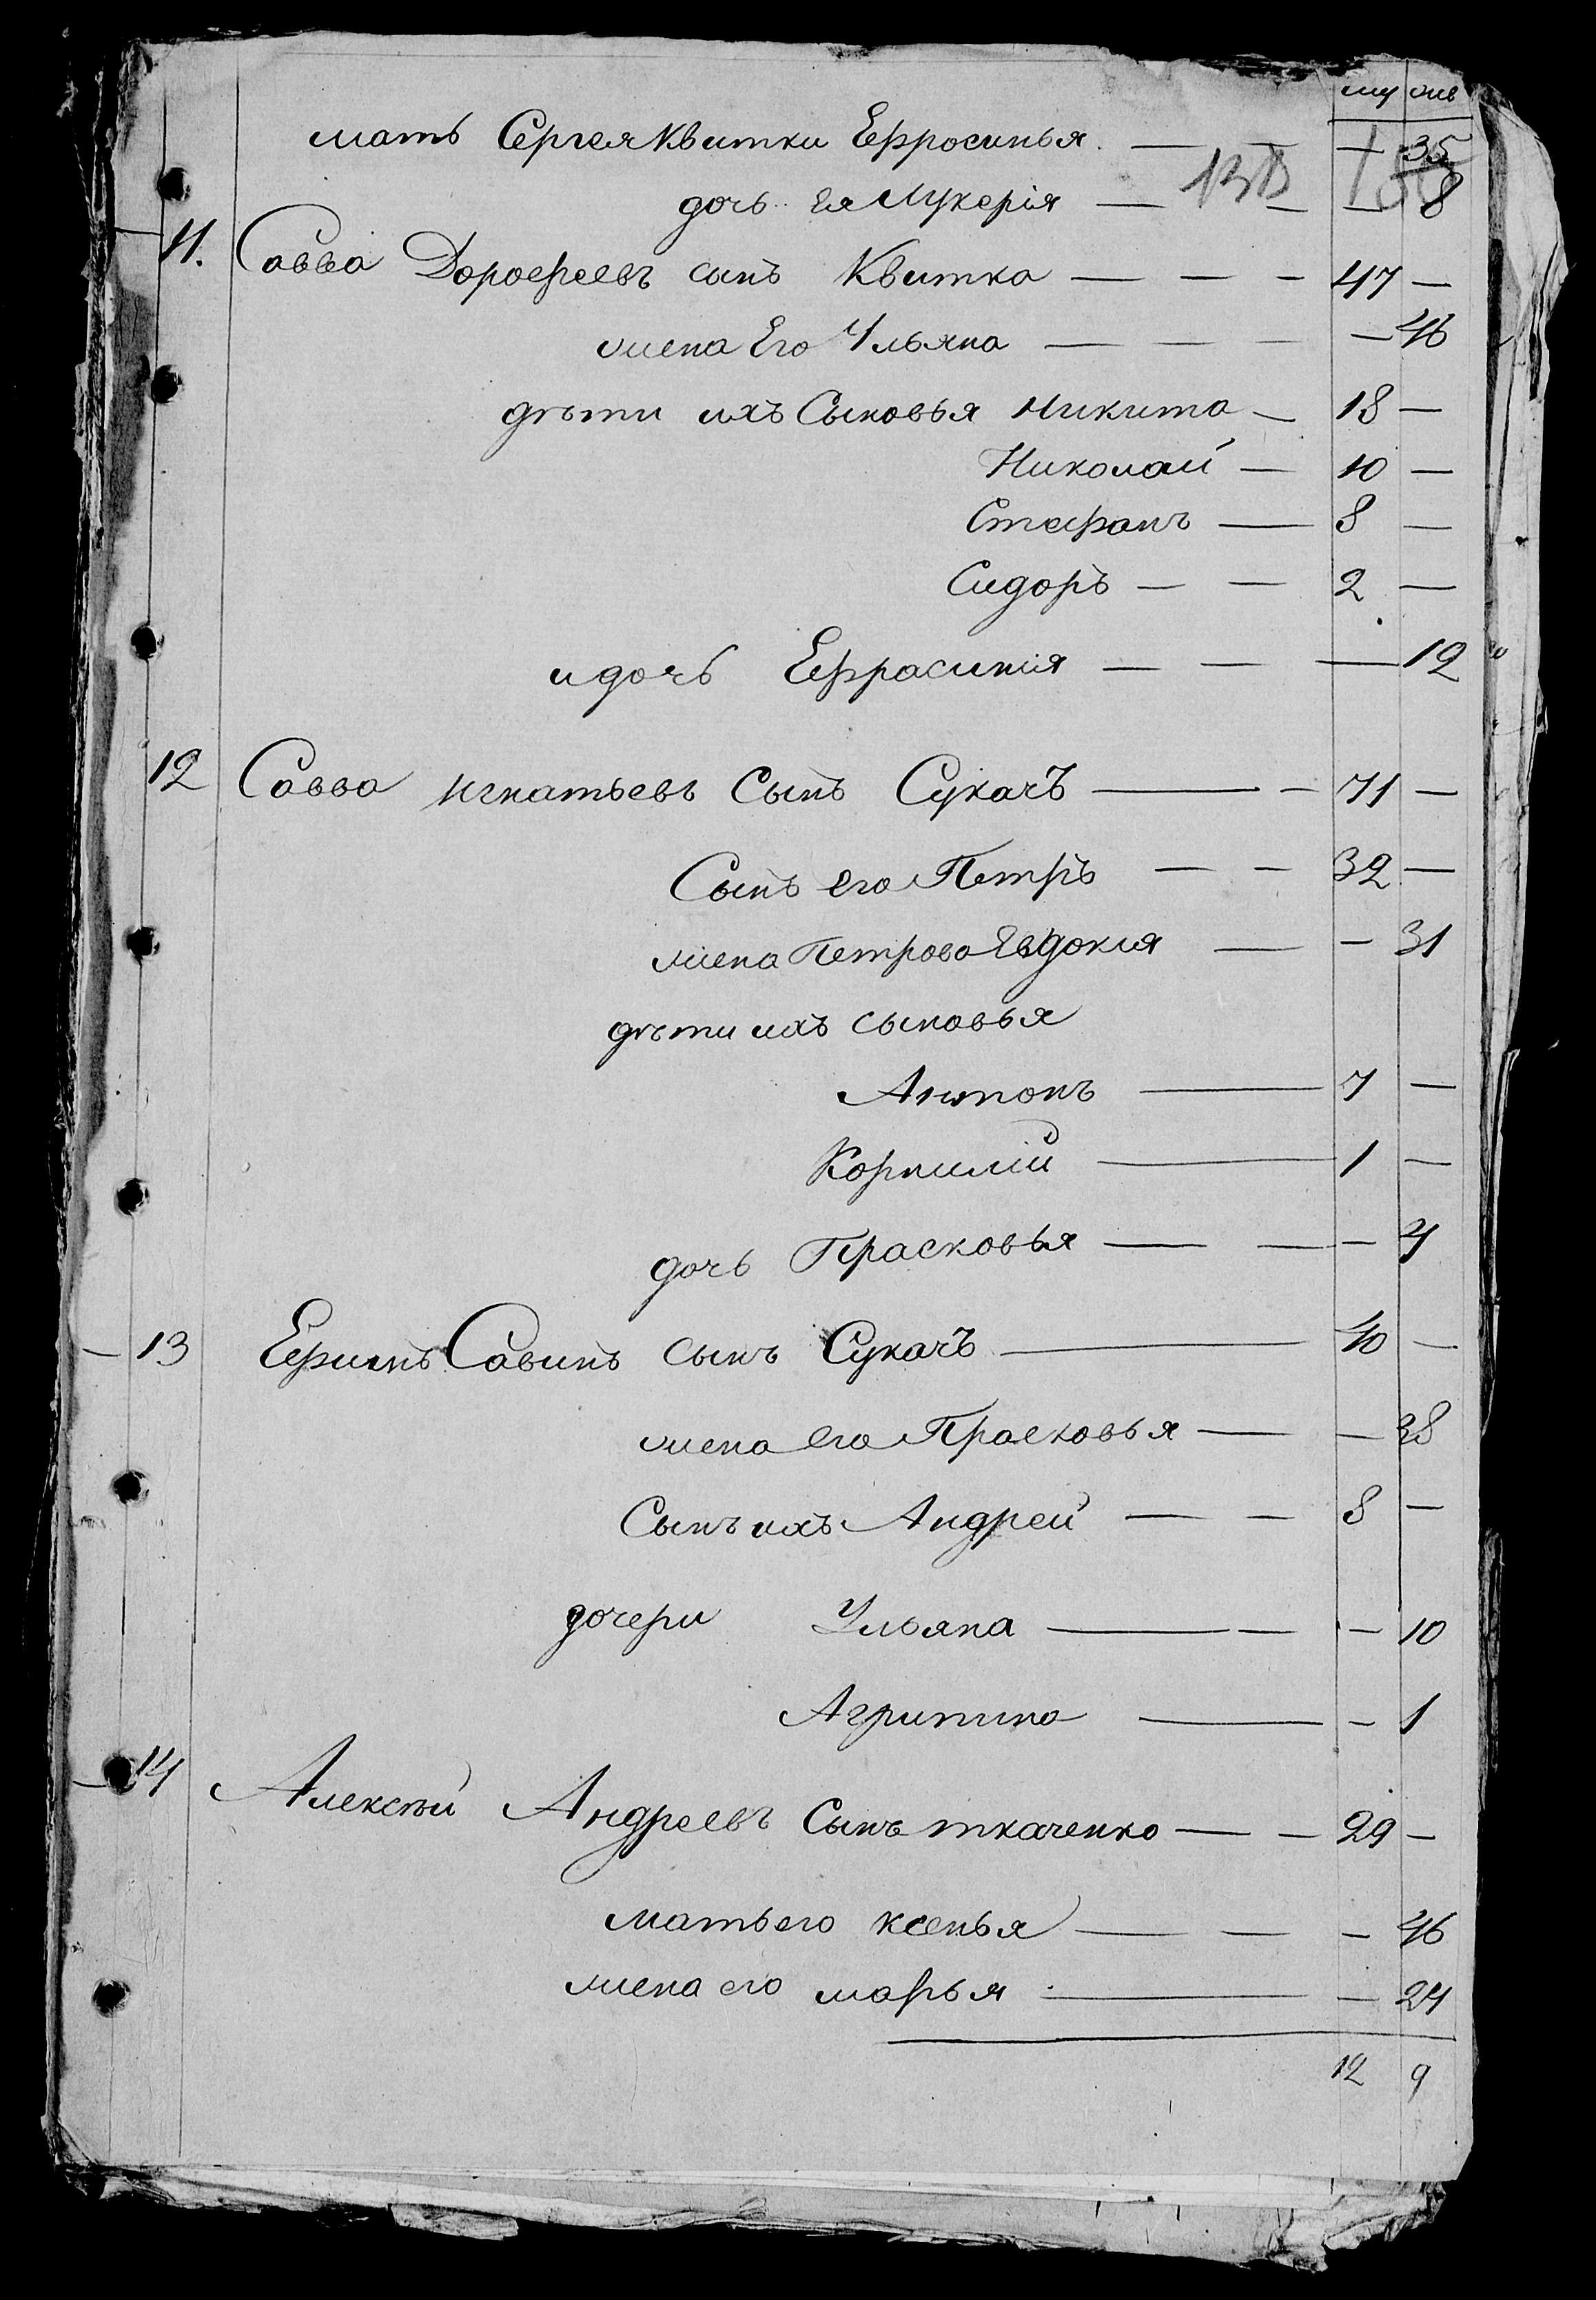 му же
мать Сергея Квитки Ефросинья — — 35
дочь ея Лукерія — — — 8
11. Савва Дорофеевъ сынъ Квитка — — — 47 —
жена Его Ульяна — — — — 46
дѣти ихъ Сыновья Никита — 18 —
Николай — 10 —
Стефанъ — 8 —
Сидоръ — — 2 —
и дочь Ефрасинія — — — 12
12 Савва Игнатьевъ Сынъ Сукачъ — — 71 —
Сынъ его Петръ — — 32 —
жена Петрова Евдокия — — 31
дѣти ихъ сыновья
Антонъ — 7 —
Корнилій — 1 —
дочь Прасковья — — — 4
13 Ефимъ Савинъ сынъ Сукачъ — 40 —
жена его Прасковья — — 38
Сынъ ихъ Андрей — — 8 —
дочери Ульяна — — — 10
Агрипина — — 1
14 Алексѣй Андреевъ Сынъ ткаченко — — 29 —
мать его ксенья — — — 46
жена его марья — — 24
12 9